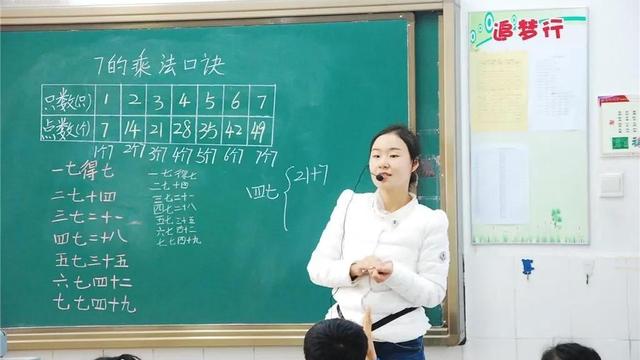 7的乘法口诀
只数(只) 1 2 3 4 5 6 7
点数(个) 7 14 21 28 35 42 49
1个7 2个7 3个7 4个7 5个7 6个7 7个7
一七得七
二七十四
三七二十一
四七二十八
五七三十五
六七四十二
七七四十九
一七得七
二七十四
三七二十一
四七二十八
五七三十五
六七四十二
七七四十九
四七 { 21+7
追梦行